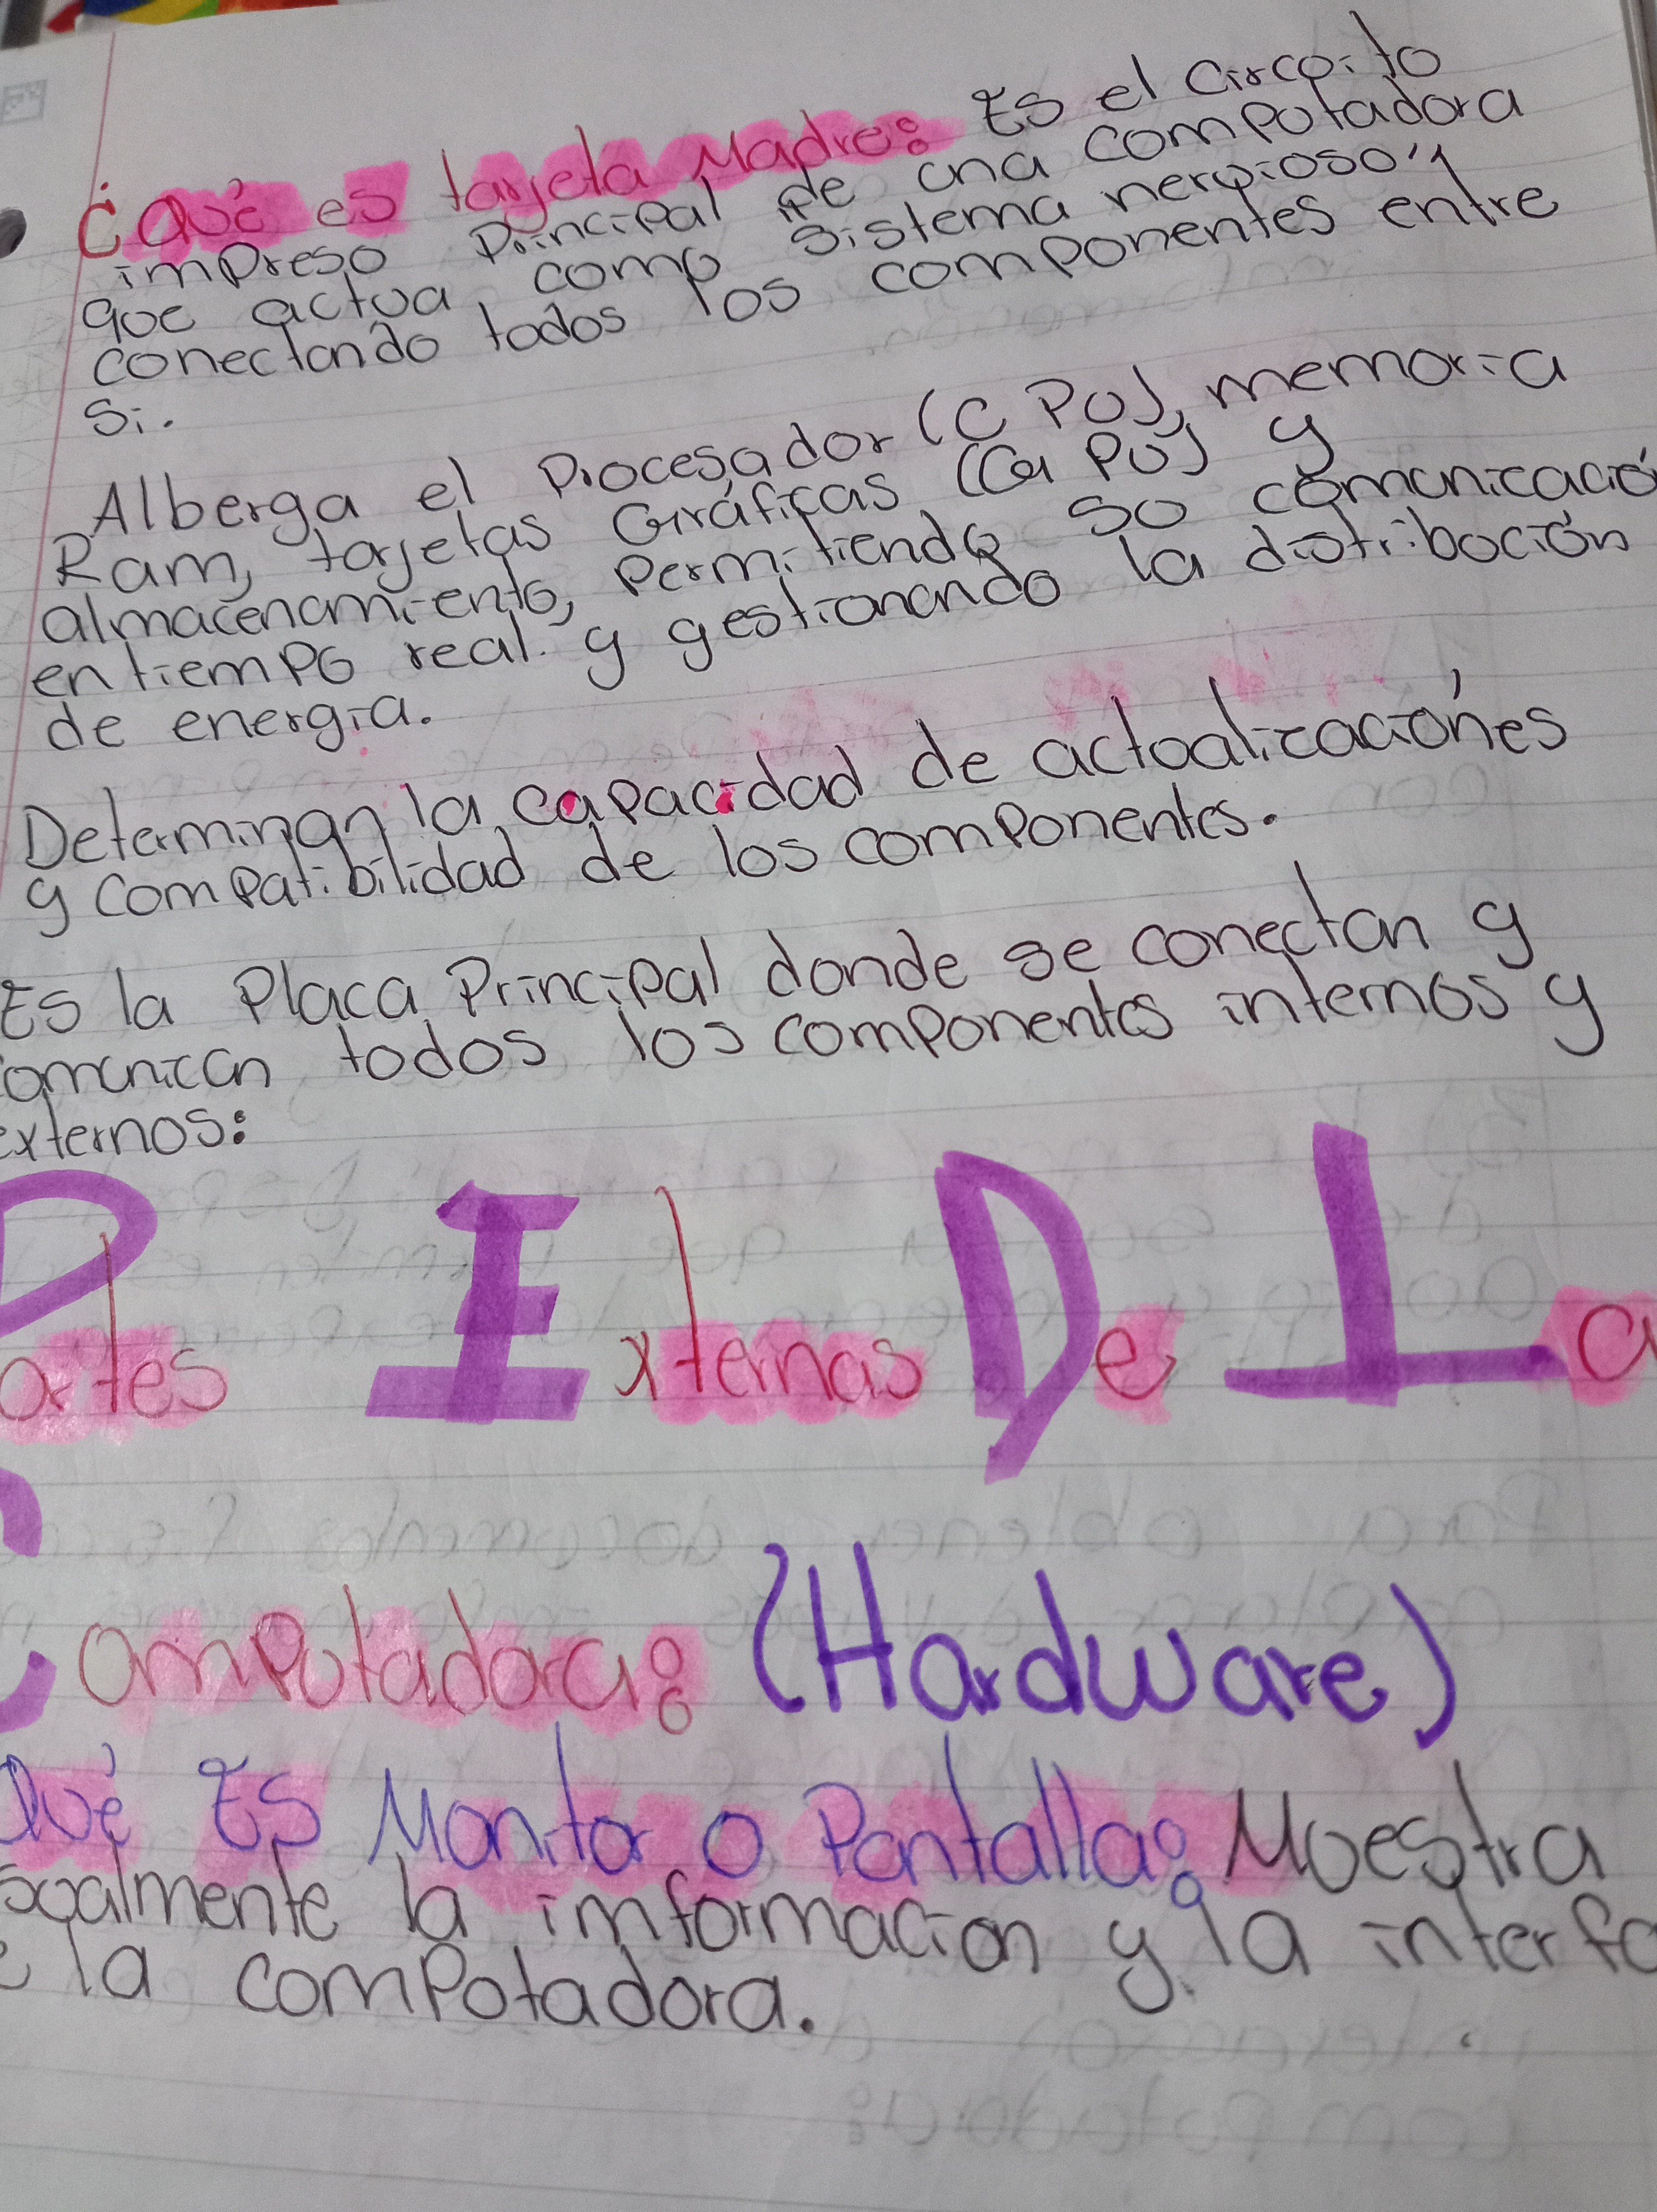 ¿Qué es tarjeta Madre: Es el Circuito
impreso principal de una computadora
que actua como sistema nervioso",
conectando todos los componentes entre
Si.
Alberga el Procesador (CPU), memoria
Ram, tarjetas Gráficas (GPU) y
almacenamiento, permitiendo su comunicació
en tiempo real. y gestionando la distribución
de energia.
Determinan la capacidad de actualizaciónes
y compatibilidad de los componentes.
Es la Placa Principal donde se conectan y
omunican todos los componentes internos y
externos:
Partes Externas De La
Computadora: (Hardware)
Qué Es Monitor o Pantalla: Muestra
sualmente la imformacion y la interfa
e la computadora.